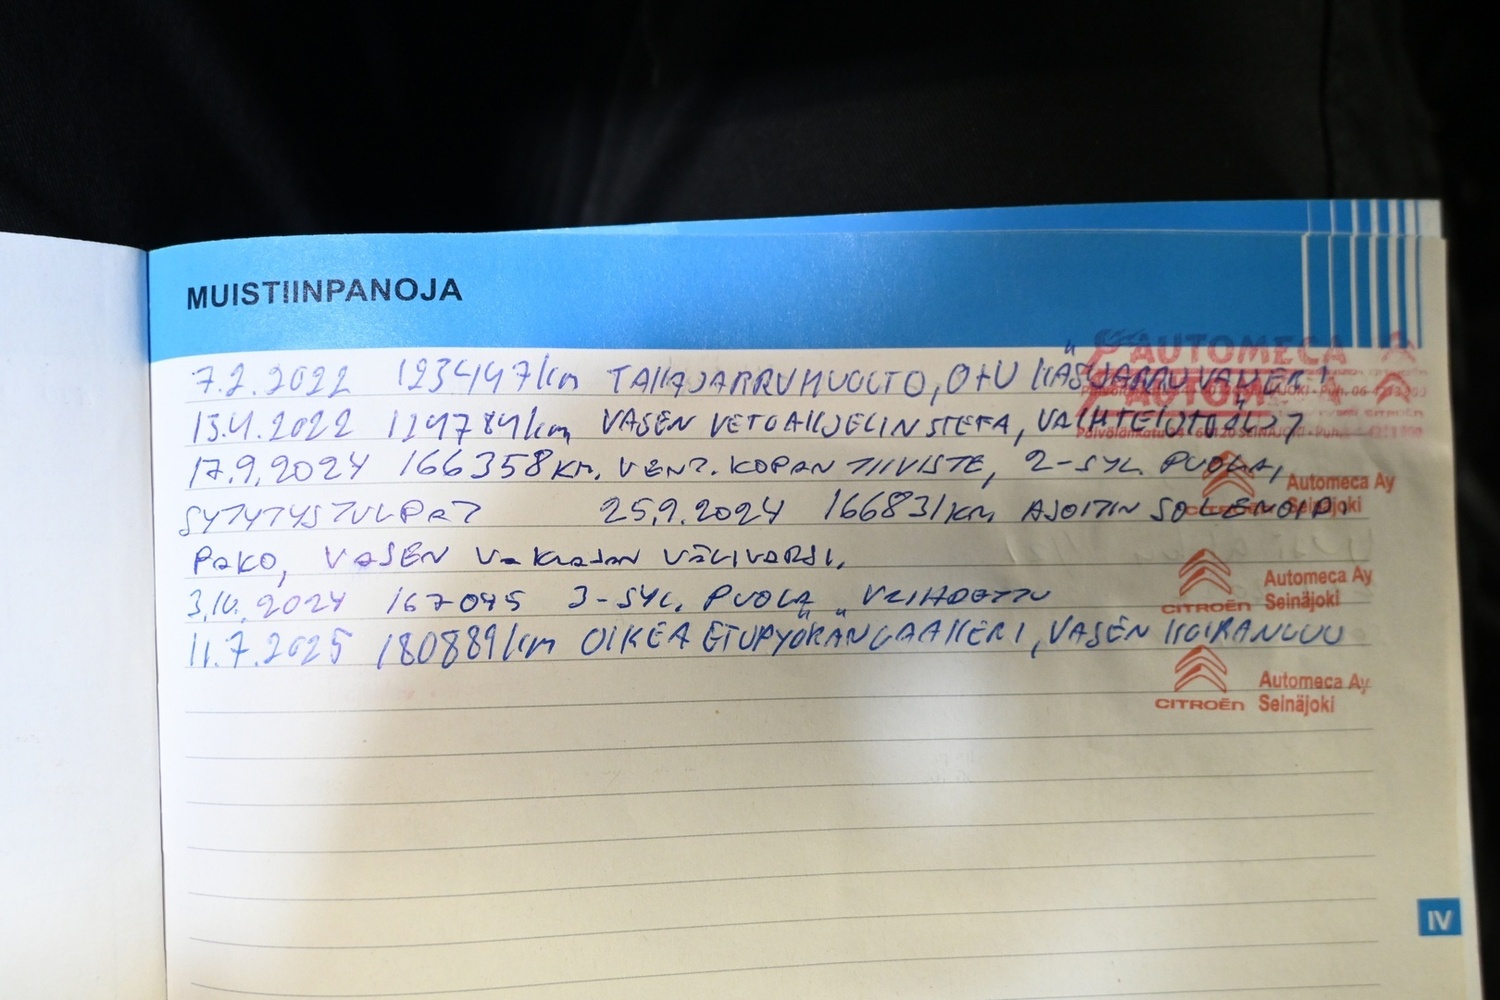 MUISTIINPANOJA
7.2.2022 123447km TAKAJARRUHUOLTO, O+U KÄSIJARRUVAIJERI
13.4.2022 124784km VASEN VETOAKSELIN STEFA, VAIHTEISTOÖLJY
17.9.2024 166358KM. VENT. KOPAN TIIVISTE, 2-SYL. PUOLA,
SYTYTYSTULPAT 25.9.2024 166831KM AJOITIN SOLENOID.
PAKO, VASEN VAKAAJAN VÄLIVARSI.
3.10.2024 167045 3-SYL. PUOLA VAIHDETTU
11.7.2025 180889km OIKEA ETUPYÖRÄNLAAKERI, VASEN KOIRANLUU
AUTOMECA
AUTOM
CITROËN Automeca Ay
Seinäjoki
CITROËN Automeca Ay
Seinäjoki
CITROËN Automeca Ay
Seinäjoki
IV